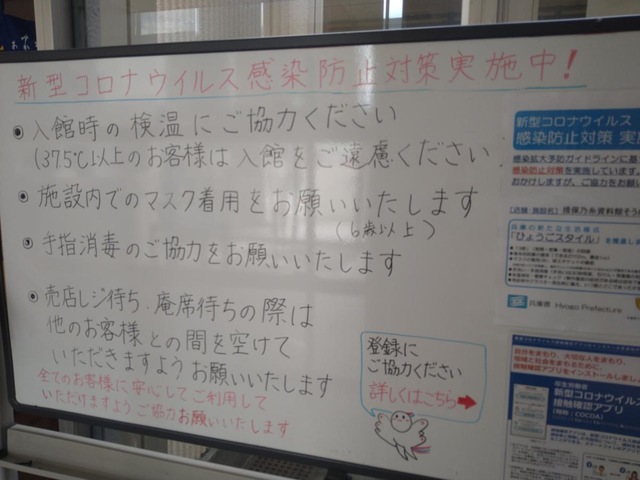 新型コロナウイルス感染防止対策実施中!
入館時の検温にご協力ください
(37.5℃以上のお客様は入館をご遠慮ください.
施設内でのマスク着用をお願いいたします
(6歳以上)
手指消毒のご協力をお願いいたします
売店レジ待ち、庵席待ちの際は
他のお客様との間を空けて
いただきますようお願いいたします
全てのお客様に安心してご利用して
いただけますようご協力お願いいたします
登録に
ご協力ください
詳しくはこちら
新型コロナウイルス
感染防止対策 実
感染拡大予防ガイドラインに基
感染防止対策を実施しています。
おかけしますが、ご協力をお願
揖保乃糸資料館そう
「ひょうごスタイル」を推進しま
兵庫県 Hyogo Prefecture
自分をまもり、大切な人をまもり、
地域と社会をまもるために、
接触確認アプリをインストールしましょ
厚生労働省
新型コロナウイルス
接触確認アプリ
(略称:COCOA)